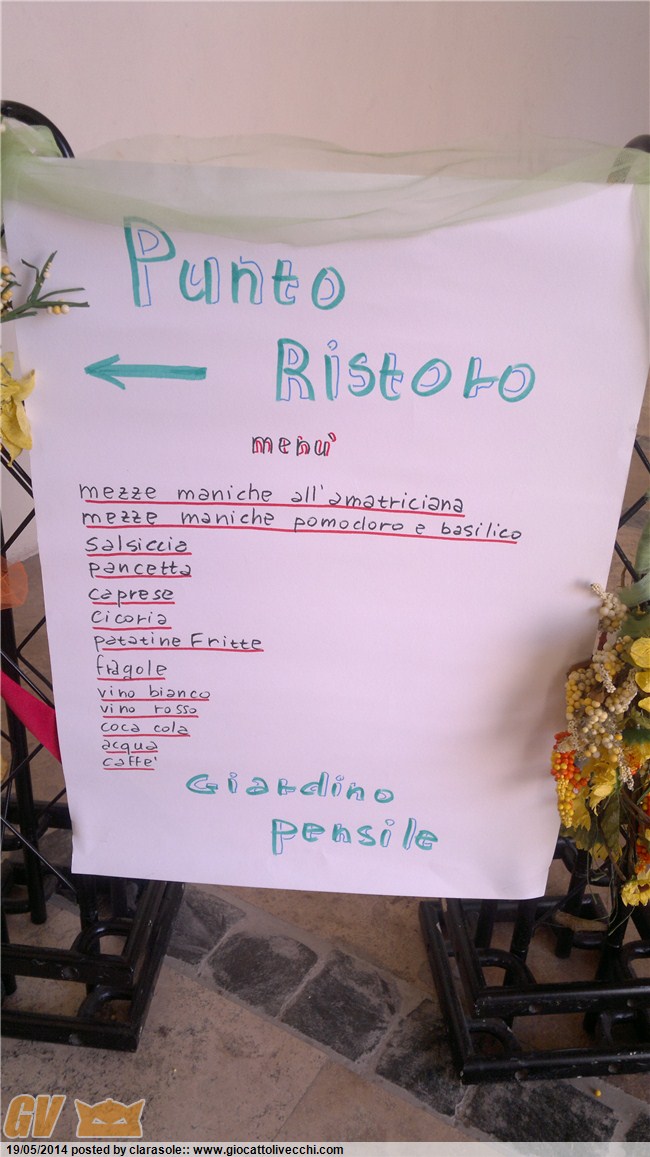 Punto
Ristoro
menu'
mezze maniche all'amatriciana
mezze maniche pomodoro e basilico
salsiccia
pancetta
caprese
cicoria
patatine Fritte
fragole
vino bianco
vino rosso
coca cola
acqua
caffe'
Giardino
pensile
GV
19/05/2014 posted by clarasole:: www.giocattolivecchi.com